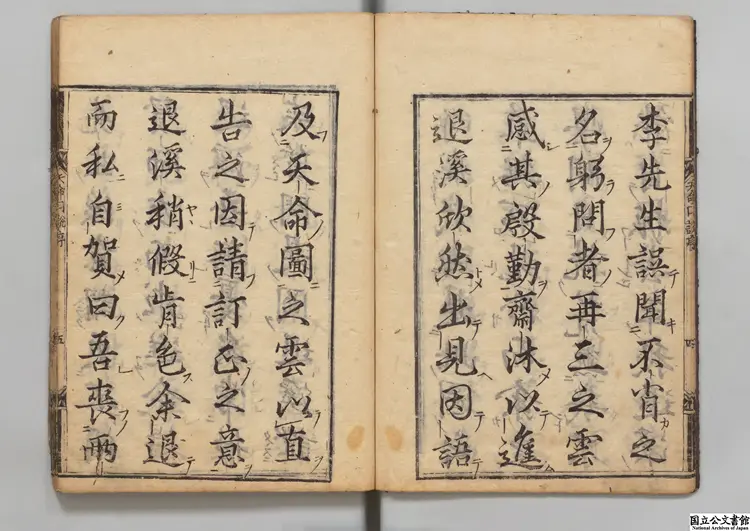 李先生誤聞不肖之
名躬問者再三之雲
感其殷勤齋沐以進
退溪欣然出見因語
及天命圖之雲以直
告之因請訂正之意
退溪稍假肯色余退
而私自賀曰吾喪兩
五
国立公文書館
National Archives of Japan